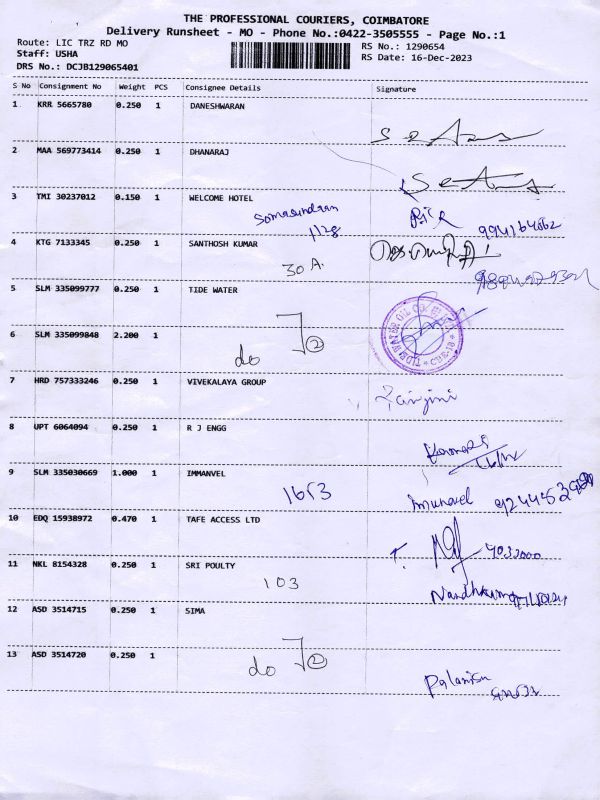 THE PROFESSIONAL COURIERS, COIMBATORE
Delivery Runsheet - MO - Phone No.:0422-3505555 - Page No.:1
Route: LIC TRZ RD MO
RS No.: 1290654
Staff: USHA
RS Date: 16-Dec-2023
DRS No.: DCJB129065401
S No Consignment No Weight PCS Consignee Details Signature
1 KRR 5665780 0.250 1 DANESHWARAN
2 MAA 569773414 0.250 1 DHANARAJ
3 TMI 30237012 0.150 1 WELCOME HOTEL
4 KTG 7133345 0.250 1 SANTHOSH KUMAR
30 A.
5 SLM 335099777 0.250 1 TIDE WATER
6 SLM 335099848 2.200 1
do 2
7 HRD 757333246 0.250 1 VIVEKALAYA GROUP
Ranjini
8 UPT 6064094 0.250 1 R J ENGG
9 SLM 335030669 1.000 1 IMMANVEL
1653
10 EDQ 15938972 0.470 1 TAFE ACCESS LTD
11 NKL 8154328 0.250 1 SRI POULTY
103
12 ASD 3514715 0.250 1 SIMA
13 ASD 3514720 0.250 1
do 2